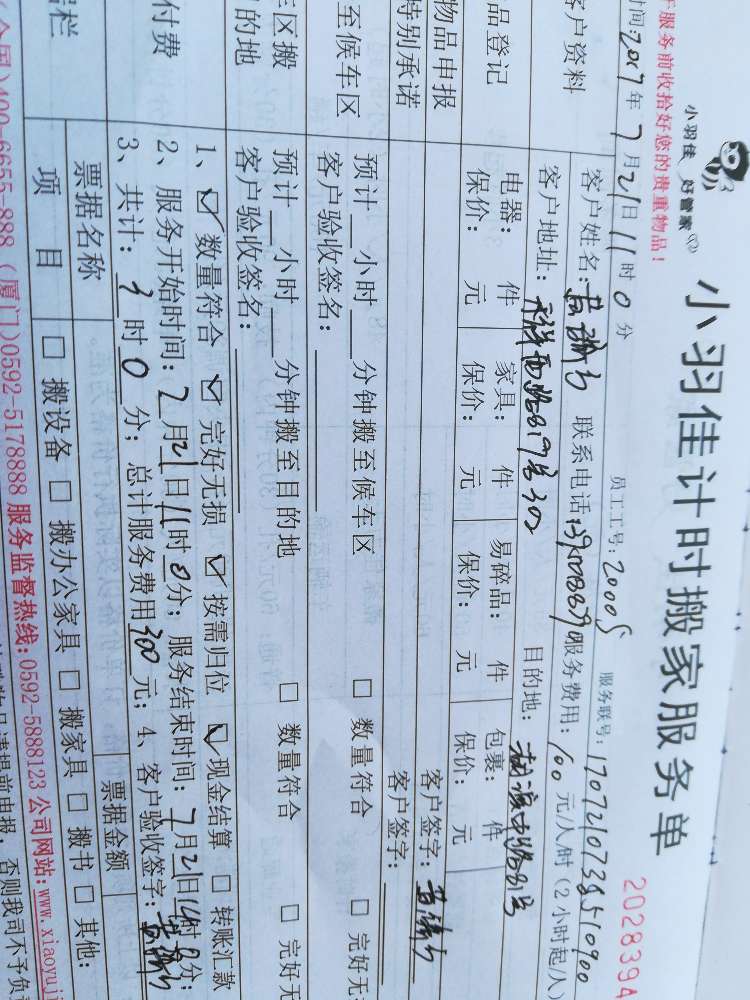 小羽佳计时搬家服务单
小羽佳 好管家
2028394
服务前收拾好您的贵重物品!
时间:2017年7月21日11时0分 员工工号:20005 服务联号:1707210738510900
客户资料
客户姓名: 联系电话: 服务费用:100元/人/时(2小时起/人)
客户地址: 目的地:
品登记
电器: 件 家具: 件 易碎品: 件 包裹: 件
保价: 元 保价: 元 保价: 元 保价: 元
物品申报 客户签字:
特别承诺 客户签字:
至候车区
预计 小时 分钟搬至候车区 □ 数量符合 □ 完好无
客户验收签名:
车区搬
的地
预计 小时 分钟搬至目的地 □ 数量符合 □ 完好无
客户验收签名:
付费
1、☑ 数量符合 ☑ 完好无损 ☑ 按需归位 ☑ 现金结算 □ 转账汇款
2、服务开始时间:7月21日11时0分;服务结束时间:7月21日14时0分;
3、共计:3时0分;总计服务费用300元;4、客户验收签字:
栏
票据名称 票据金额
项 目 □ 搬设备 □ 搬办公家具 □ 搬家具 □ 搬书 □ 其他:
(全国)400-6655-888 (厦门)0592-5178888 服务监督热线:0592-5888123 公司网站:www.xiaoyuj
物品请提前申报,否则我司不予负